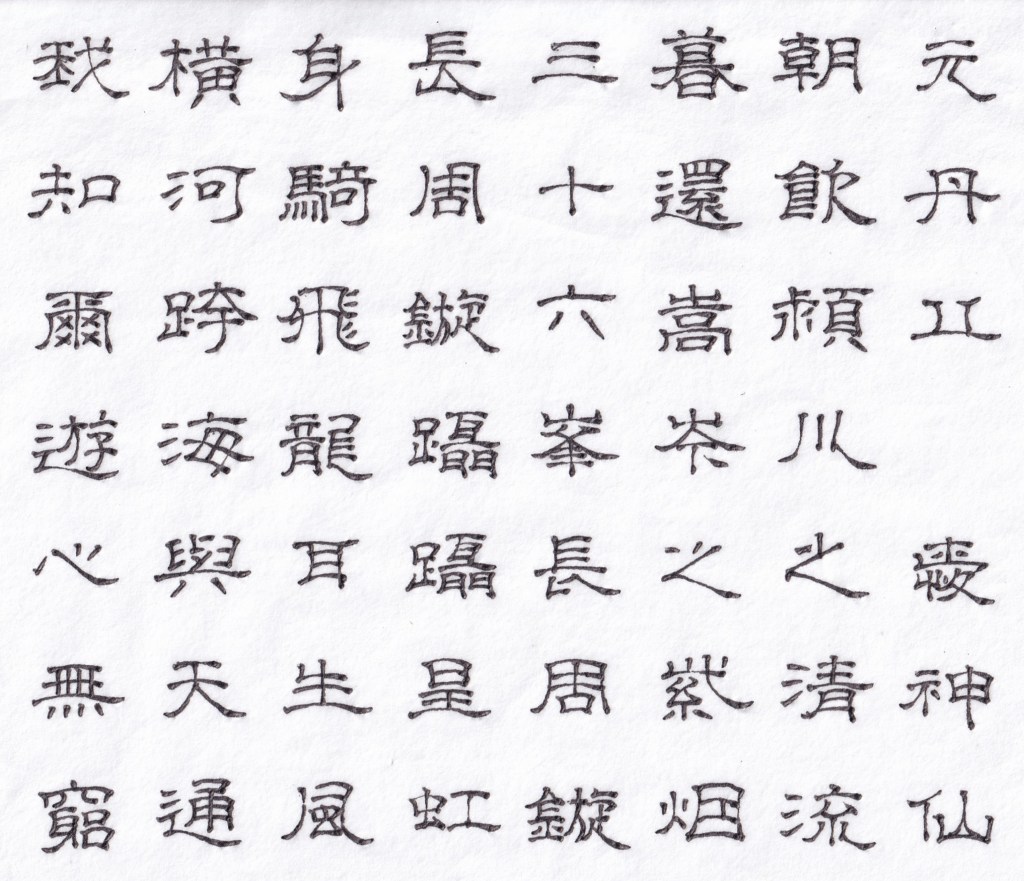 元丹丘 愛神仙
朝飲潁川之清流
暮還嵩岑之紫烟
三十六峯長周鏇
長周鏇躡躡星虹
身騎飛龍耳生風
橫河跨海與天通
我知爾遊心無窮